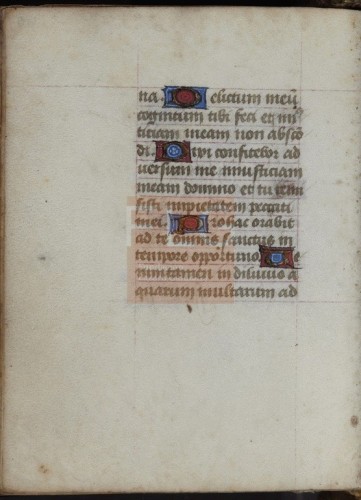 na. Delictum meū
cognitum tibi feci et in
iticiam meam non absco
di. Dixi confitebor ad
uersum me iniusticiam
meam domino et tu remi
sisti impietatem peccati
mei. Pro hac orabit
ad te omnis sanctus in
tempore opportuno. Ve
rumtamen in diluuio a
quarum multarum ad